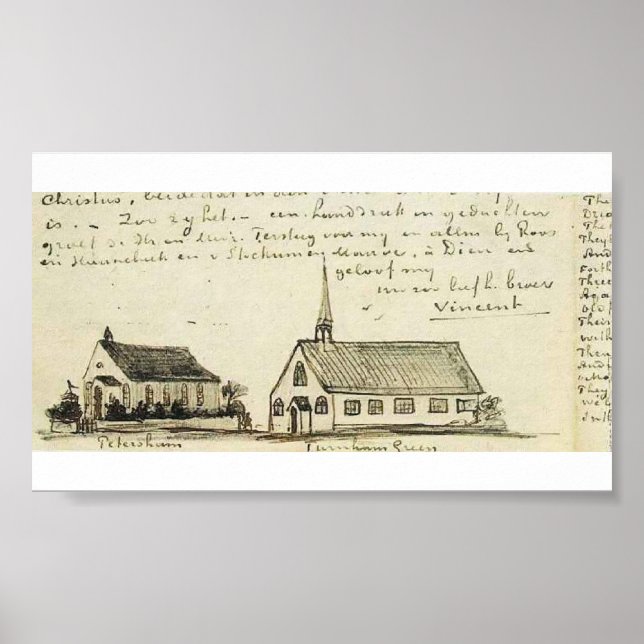 Christus,
is. – Zoo zij het. – een handdruk in gedachten
groet d. Hr en Mevr. Tersteeg voor mij en allen bij Roos
en Haanebeek en v Stockum en Mauve, à Dieu en
geloof mij
uw zoo liefh. broer
Vincent
Petersham
Turnham Green
The
The
They
And
forth
Three
Aga
old
Their
with
They
And
They
we